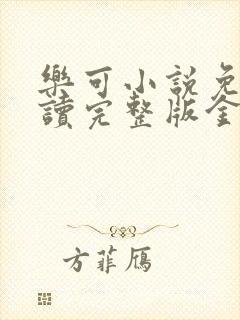 樂可小説免
讀完整版全
方菲鴈